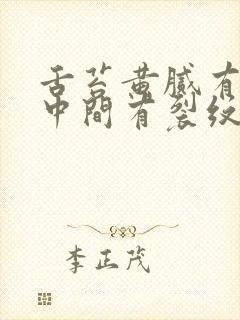 舌苔黄腻有
中间有裂纹
李正茂